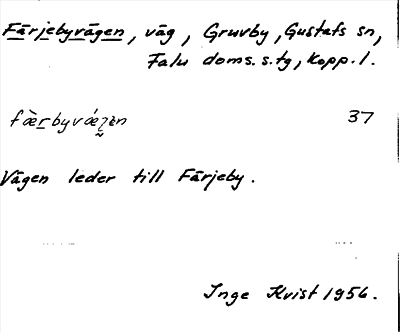 Färjebyvägen, väg, Gruvby, Gustafs sn,
Falu doms.s.tg, Kopp.l.
fæ̀rbyvǽʒèn 37
Vägen leder till Färjeby.
Inge Kvist 1956.